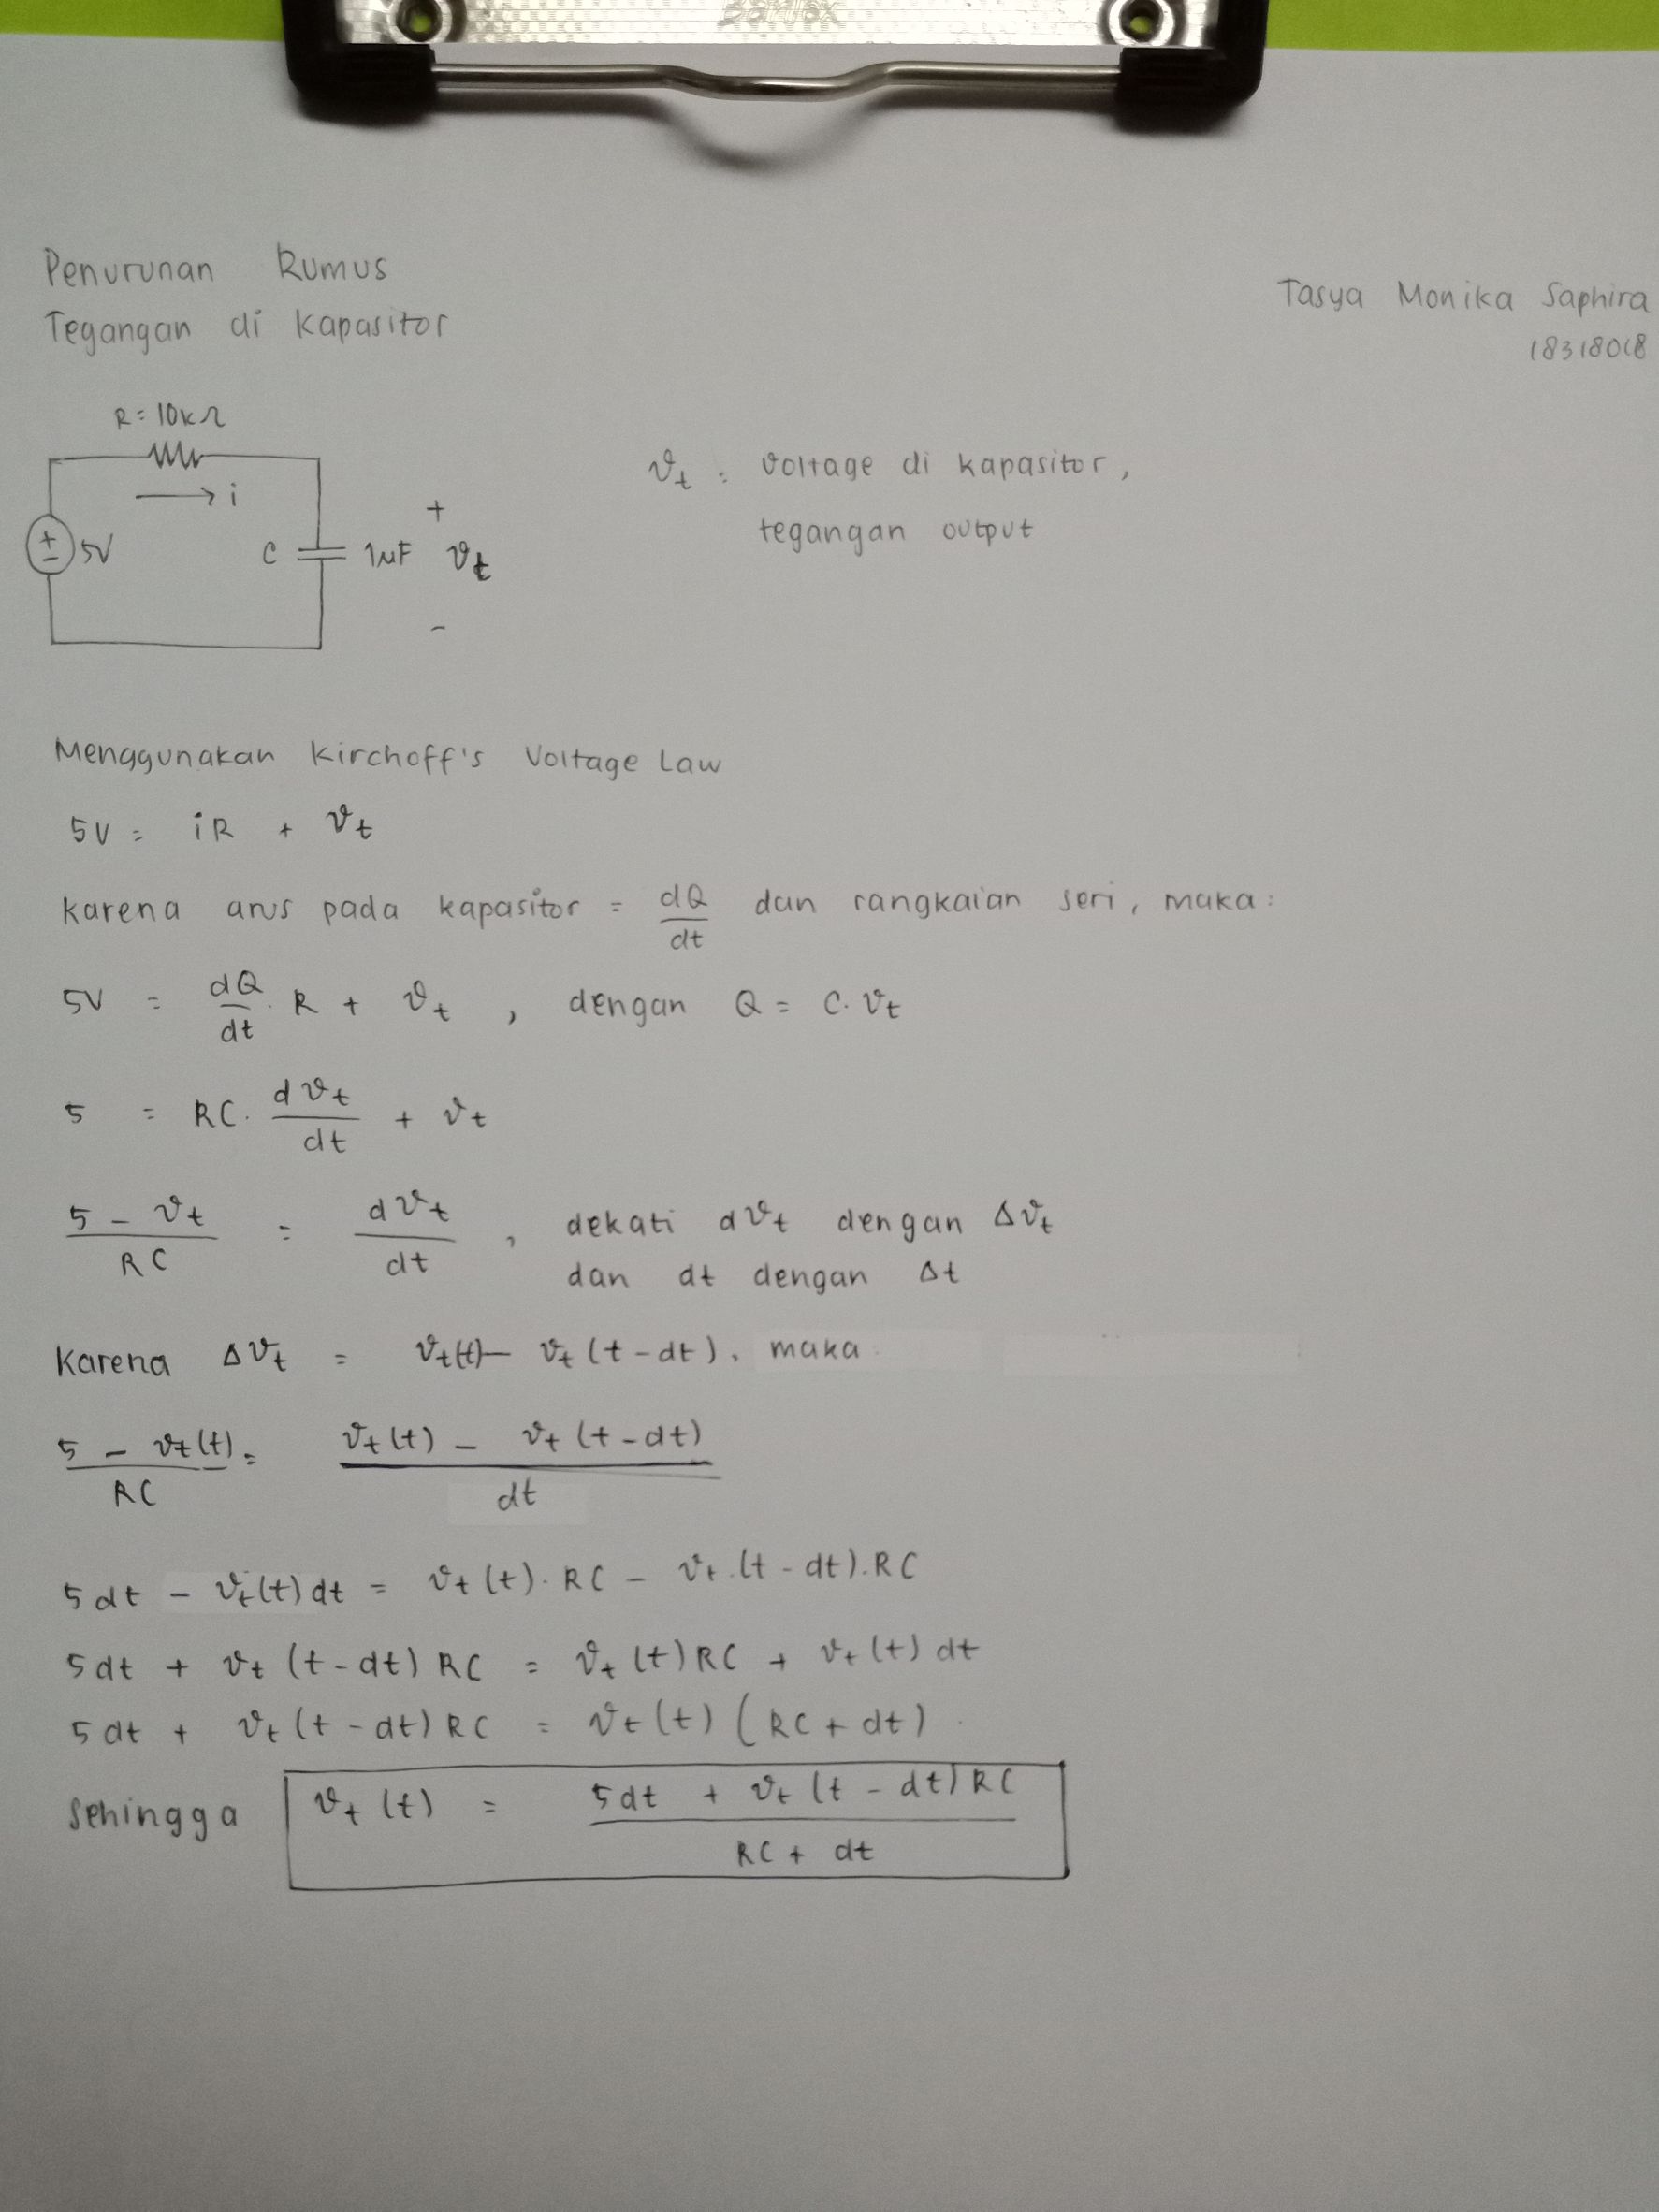 Penurunan Rumus
Tegangan di kapasitor
Tasya Monika Saphira
18318018
R = 10kΩ
i
+
5V
C
1μF
vt
-
vt : voltage di kapasitor,
tegangan output
Menggunakan Kirchoff's Voltage Law
5V = iR + vt
karena arus pada kapasitor = dQ/dt dan rangkaian seri, maka:
5V = dQ/dt . R + vt , dengan Q = C. vt
5 = RC. dvt/dt + vt
5 - vt / RC = dvt/dt , dekati dvt dengan Δvt
dan dt dengan Δt
Karena Δvt = vt(t) - vt (t - dt), maka
5 - vt(t) / RC = vt(t) - vt (t - dt) / dt
5 dt - vt(t) dt = vt (t). RC - vt.(t - dt). RC
5 dt + vt (t - dt) RC = vt (t) RC + vt (t) dt
5 dt + vt (t - dt) RC = vt (t) (RC + dt)
Sehingga vt (t) = 5 dt + vt (t - dt) RC / RC + dt